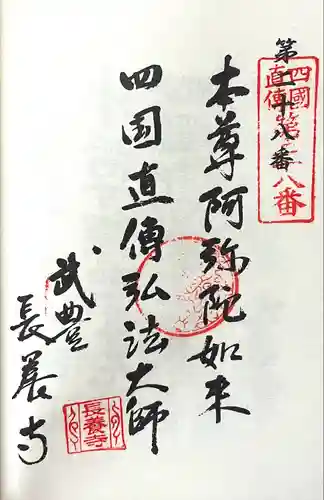 第二十八番
四國
直傳
第二八番
本尊阿弥陀如来
四国直傳弘法大師
武豊
長養寺
長養寺